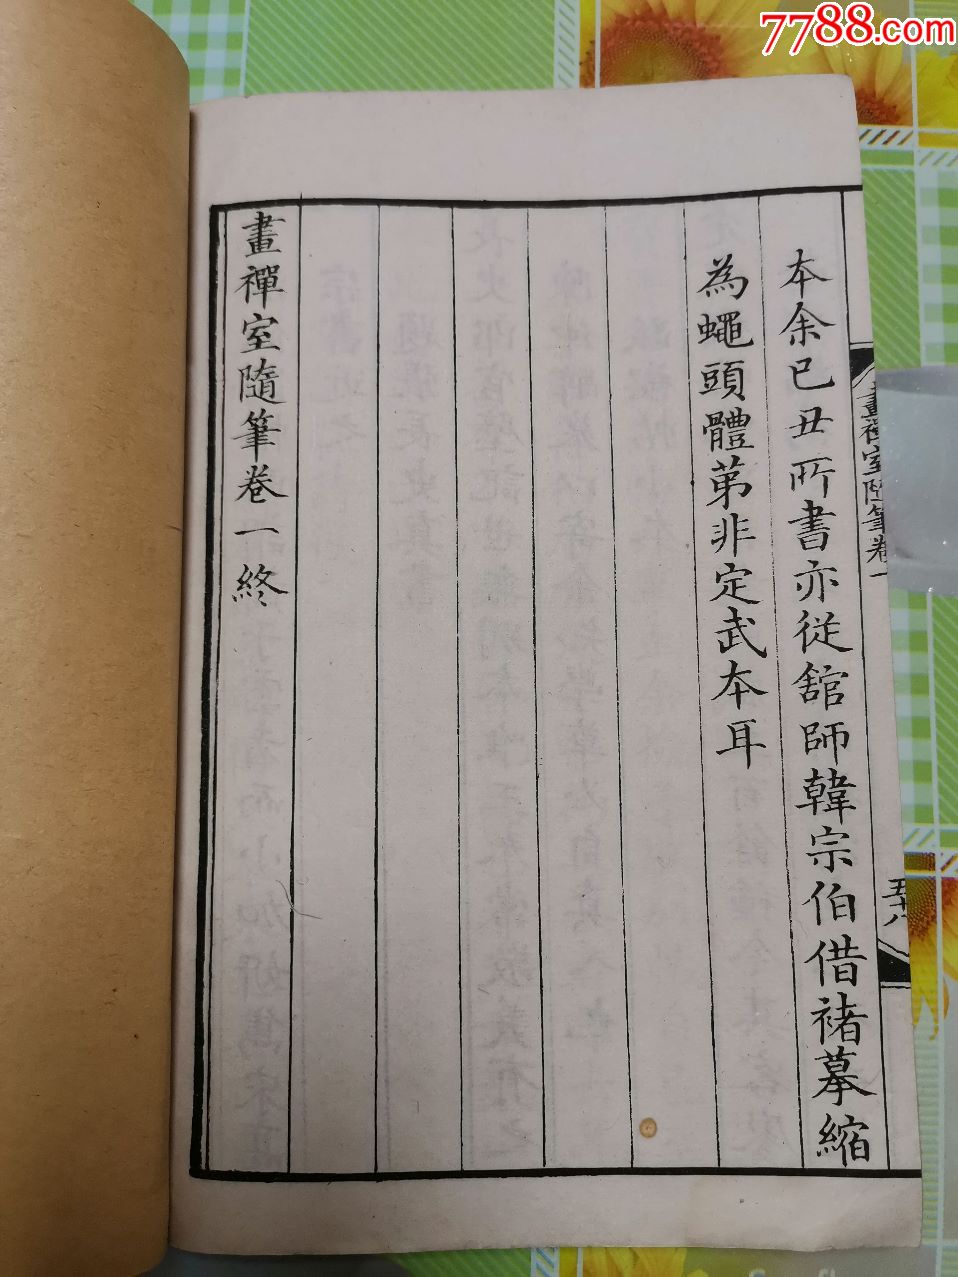 7788.com
本余已丑所書亦從舘師韓宗伯借褚摹縮
為蠅頭體苐非定武本耳
畫禪室隨筆卷一終
畫禪室隨筆卷一
五十八